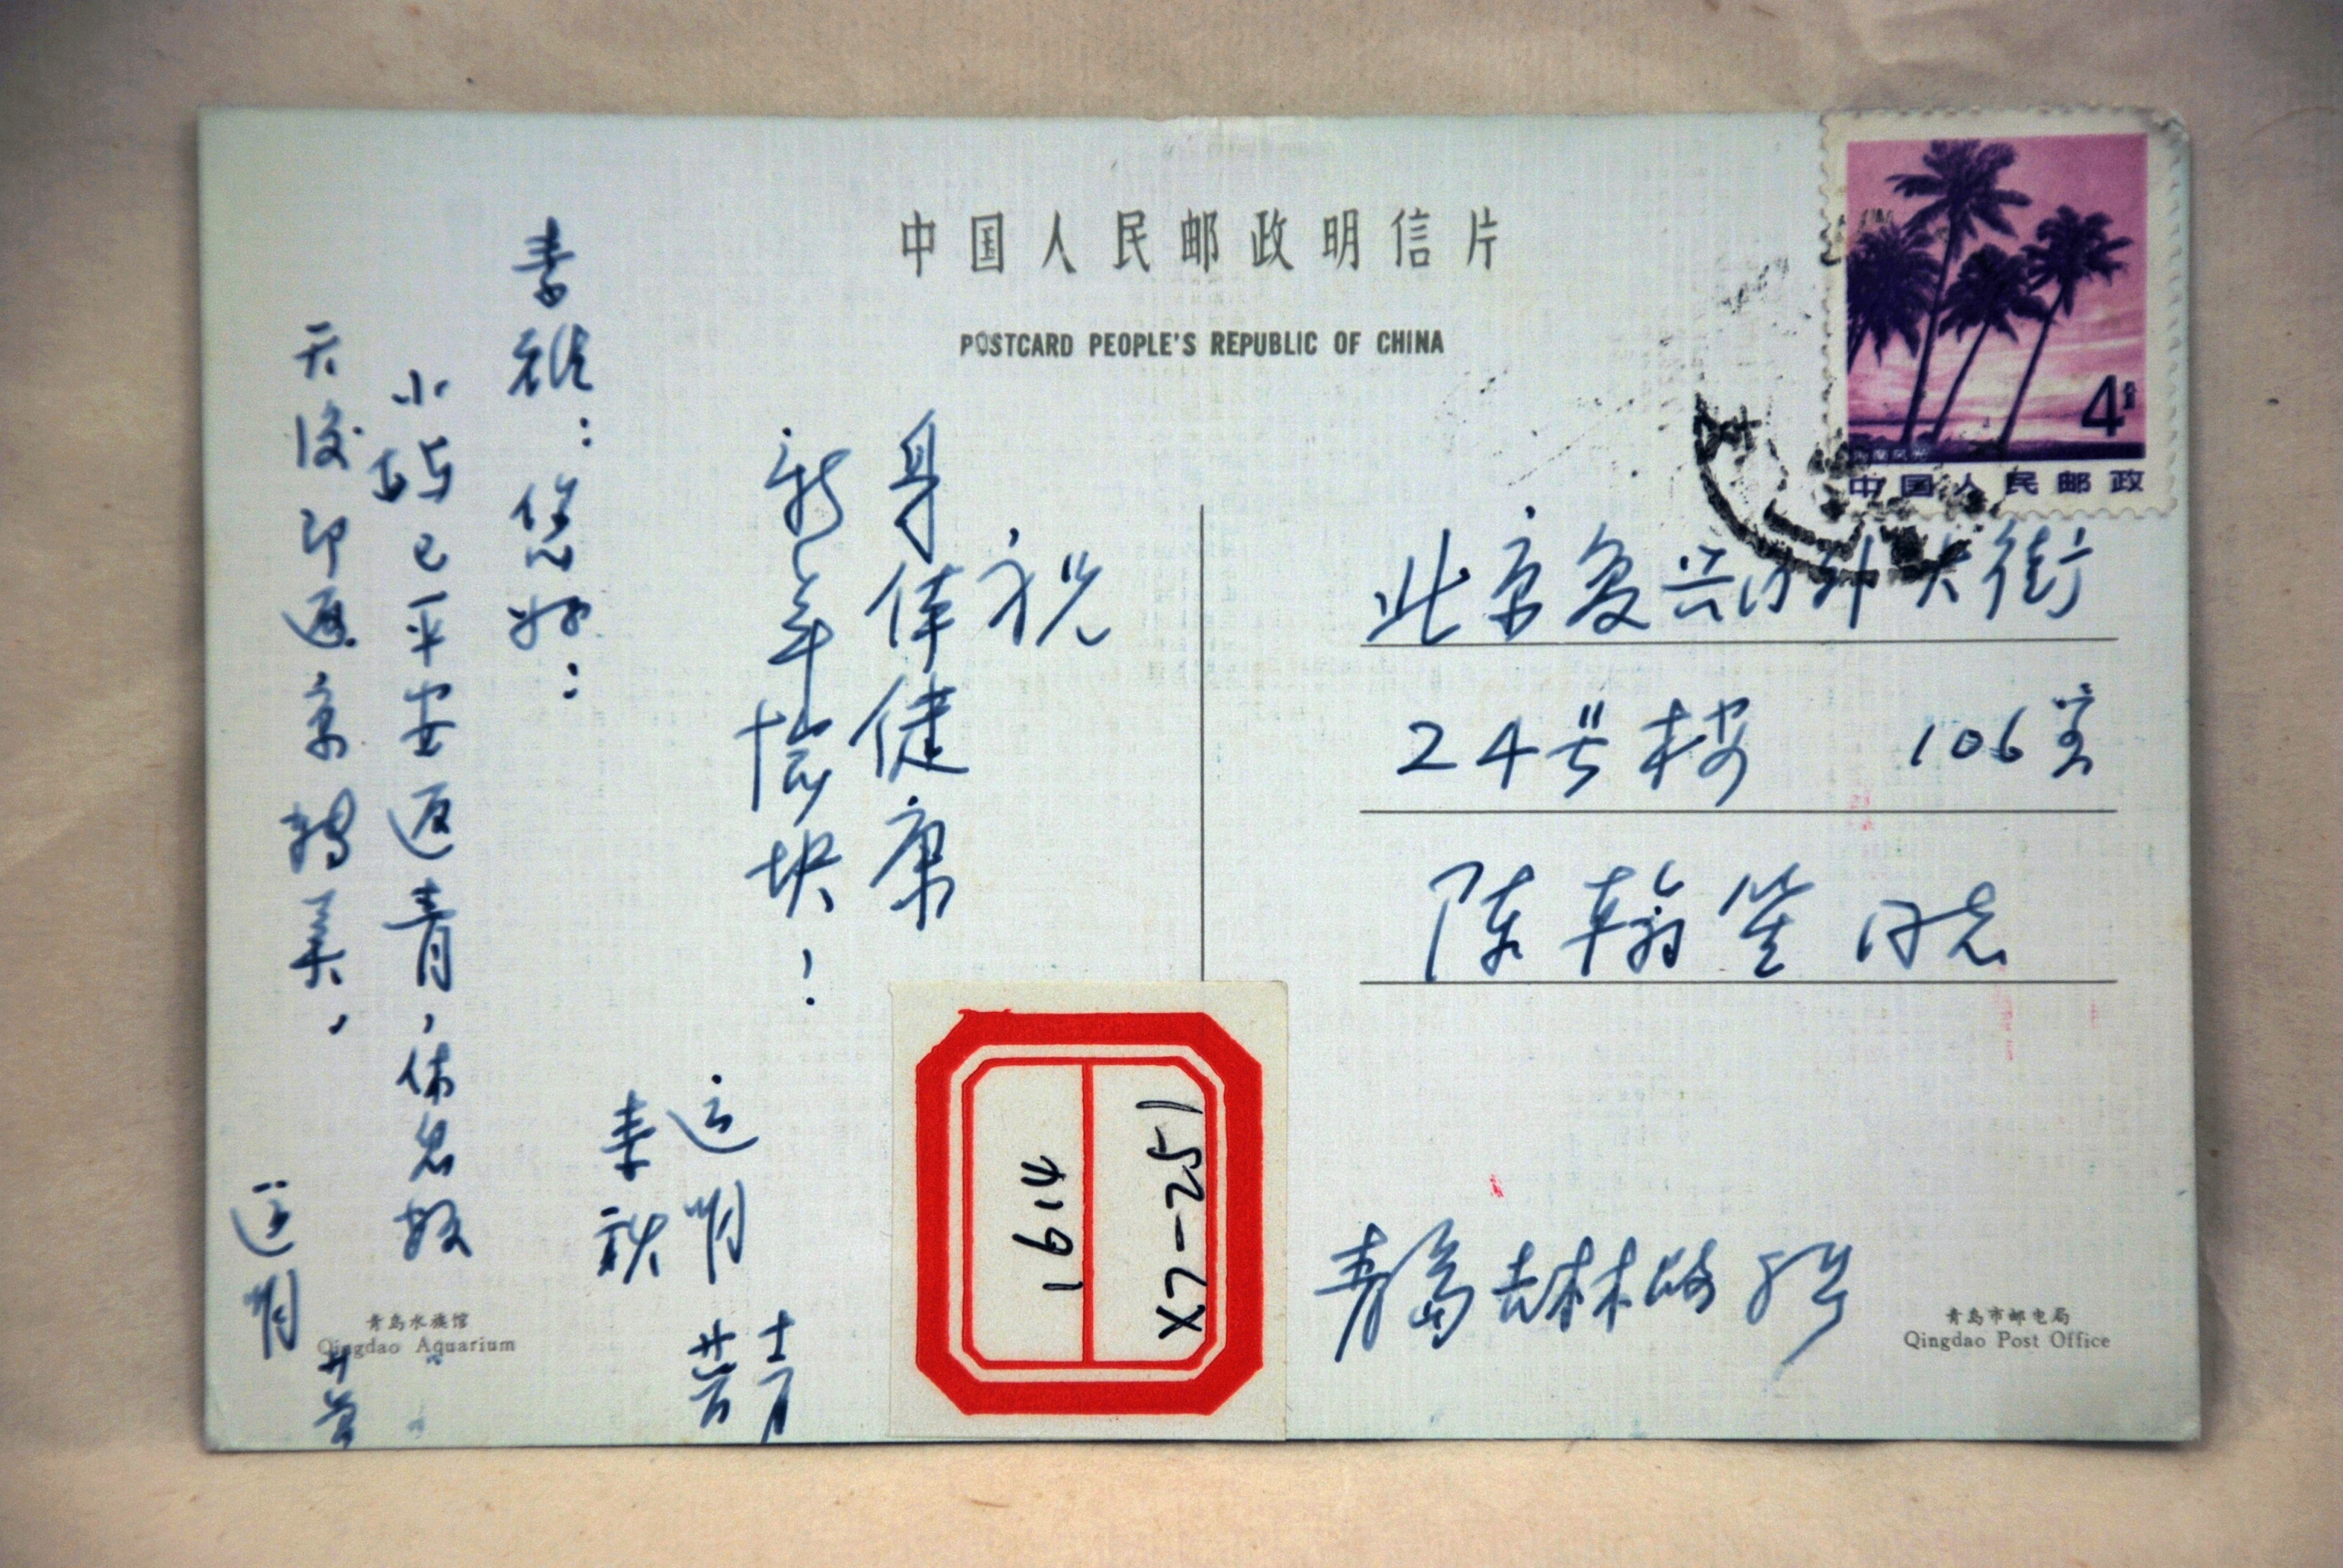 中国人民邮政明信片
POSTCARD PEOPLE'S REPUBLIC OF CHINA
4分
中国人民邮政
祝
身体健康
新年愉快!
您好:
已平安返青,休息数
天后即返京转美.
北京复兴门外大街
24号楼 106室
陈翰笙同志
青岛吉林路
X7-251
1614
青岛水族馆
Qingdao Aquarium
青岛市邮电局
Qingdao Post Office